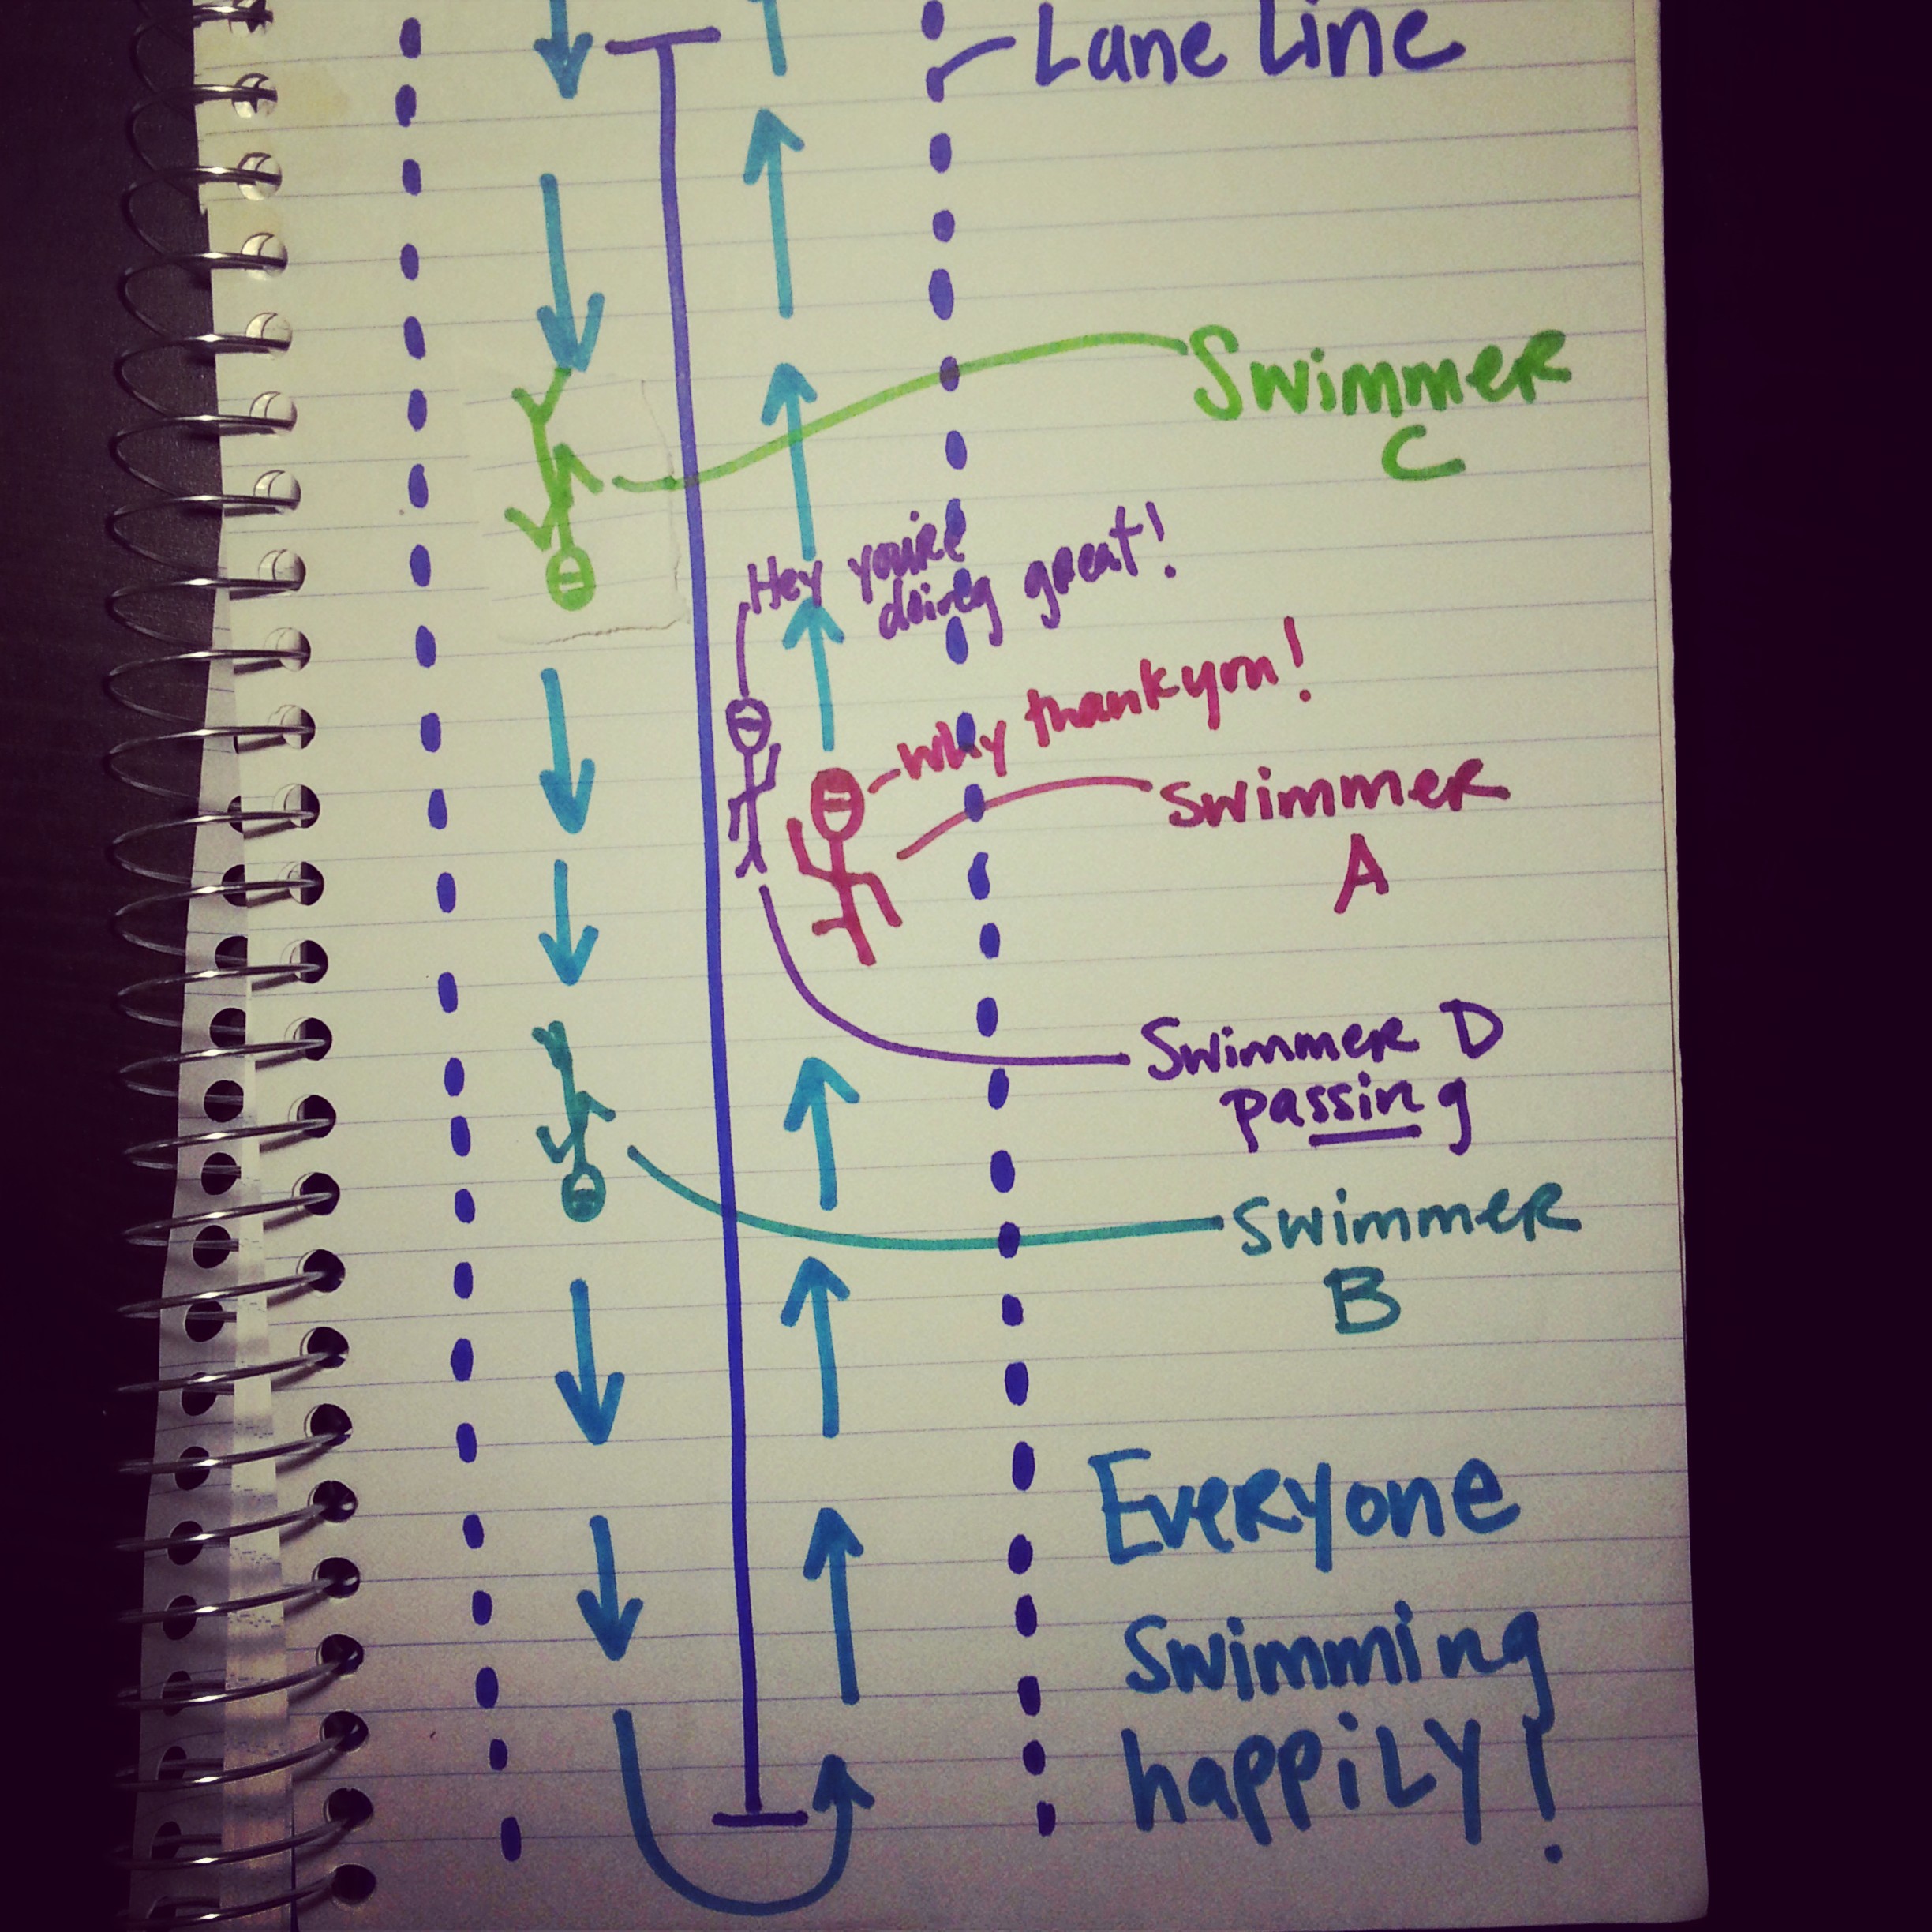 Lane Line
Swimmer
C
Hey you're
doing great!
Why thank you!
Swimmer
A
Swimmer D
passing
Swimmer
B
Everyone
Swimming
happily!